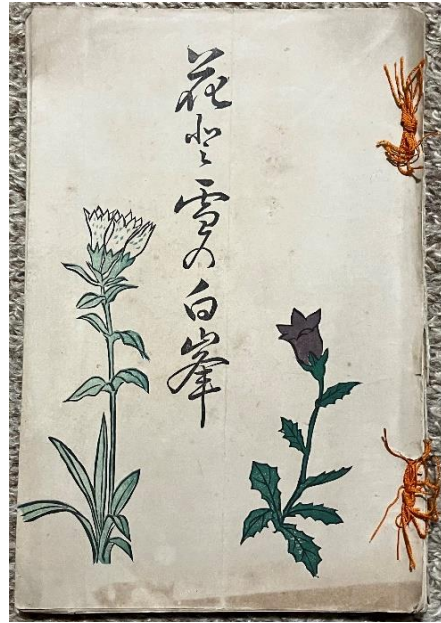 花と雪の白峯